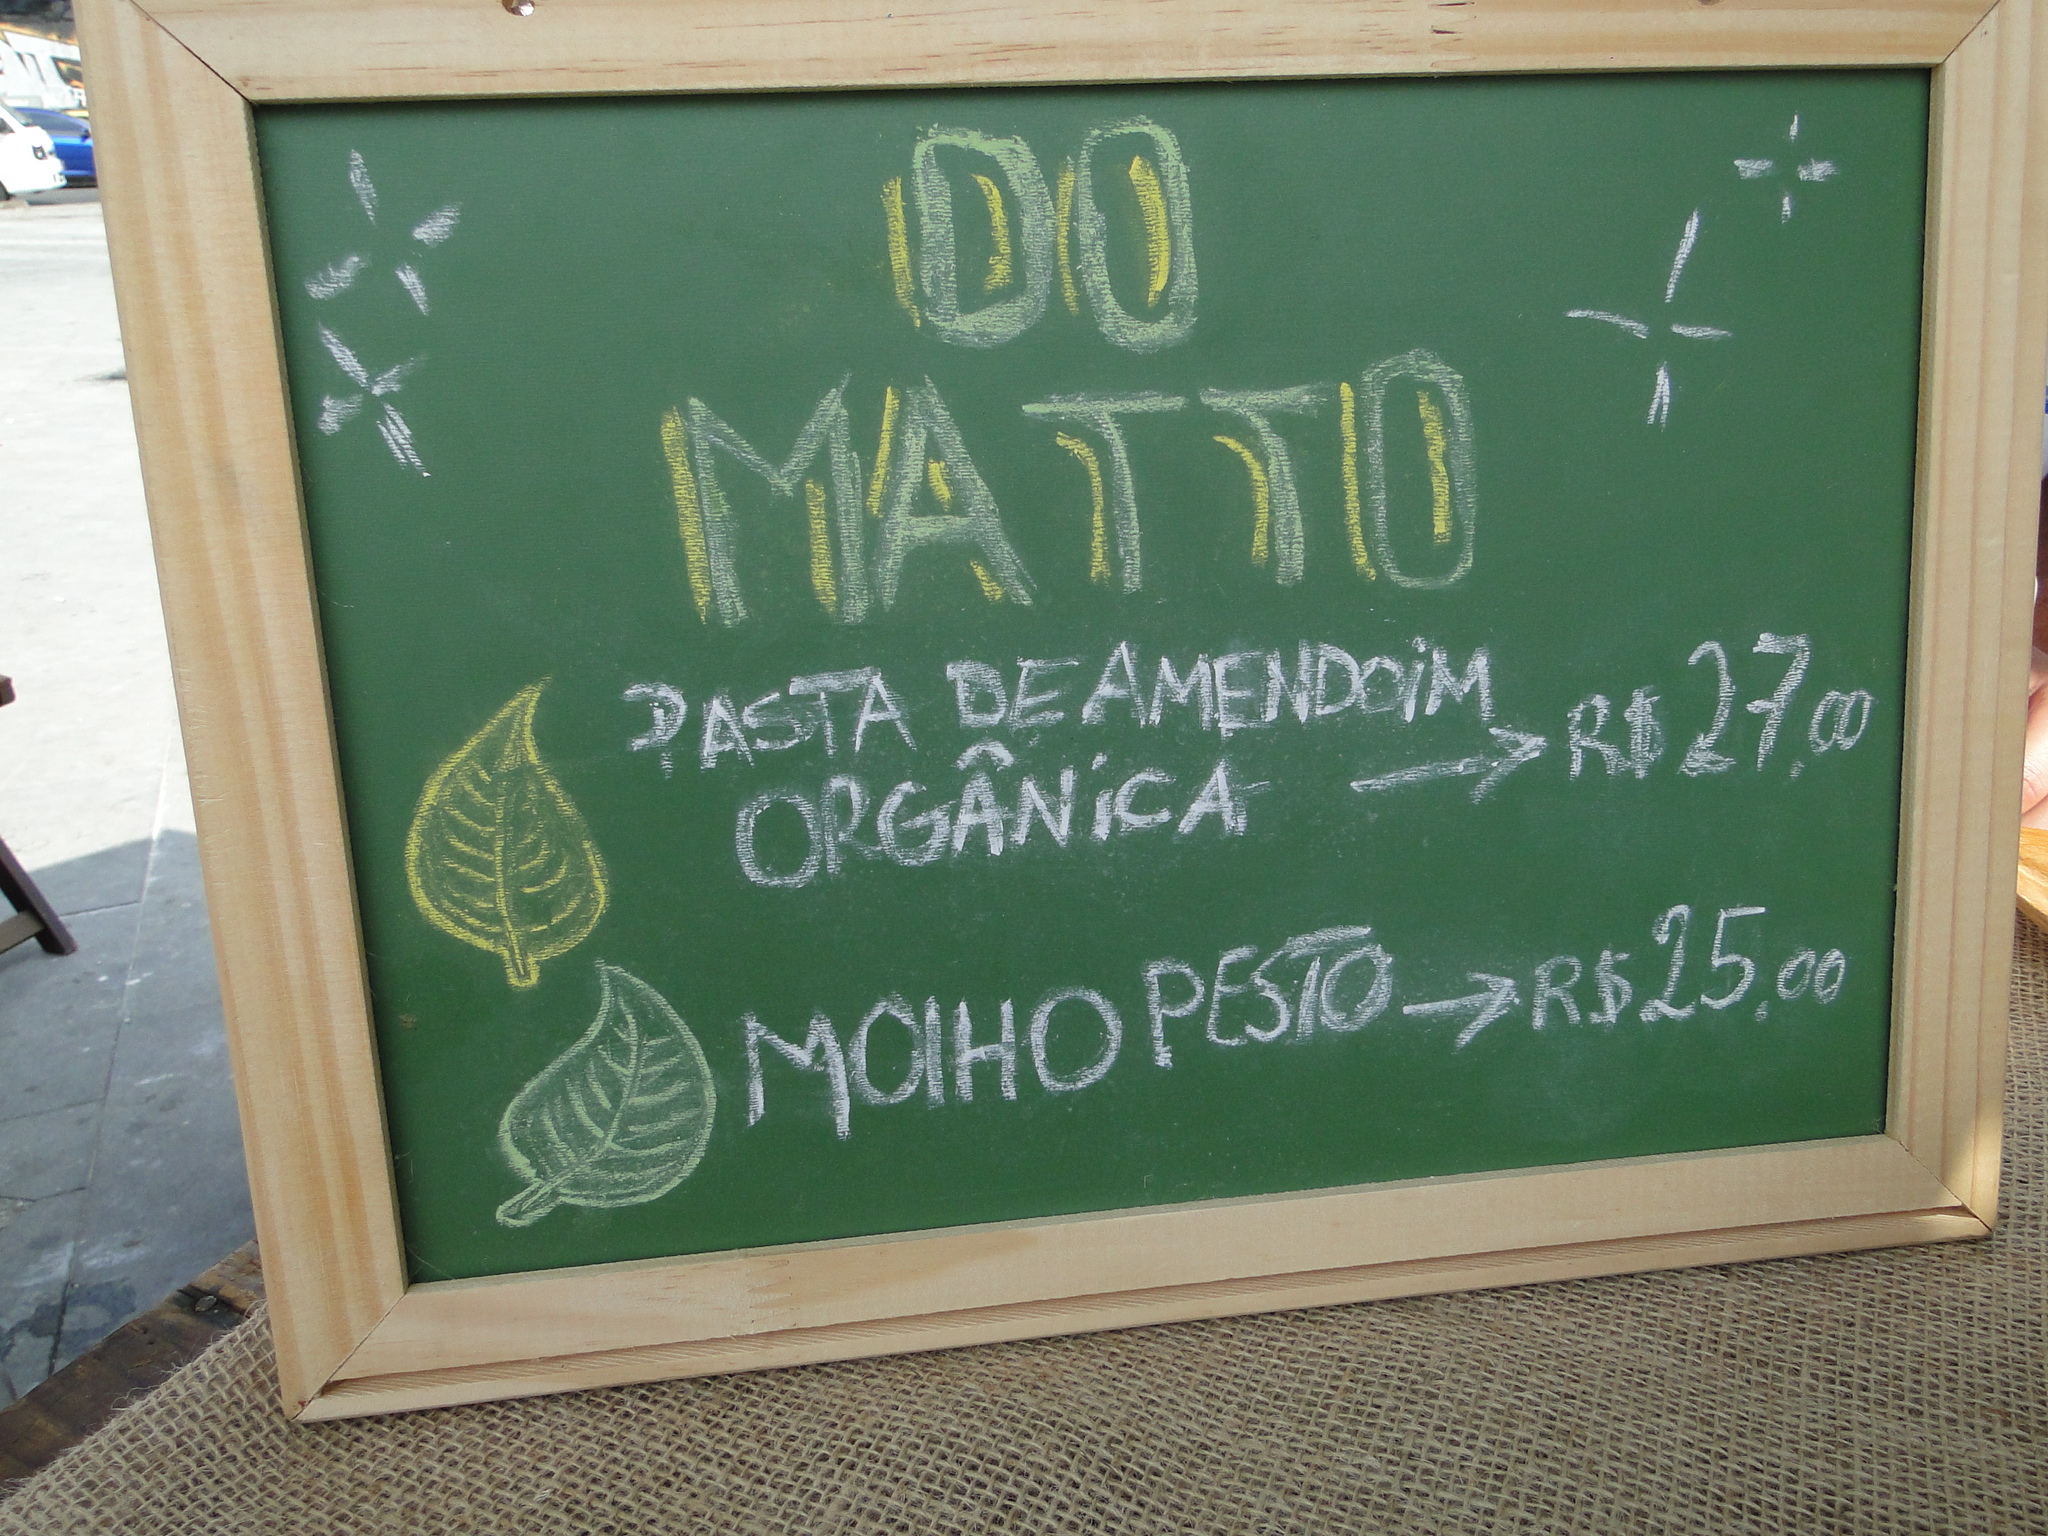 DO
MATTO
PASTA DE AMENDOIM
ORGÂNICA → R$ 27,00
MOlHO PESTO → R$ 25,00